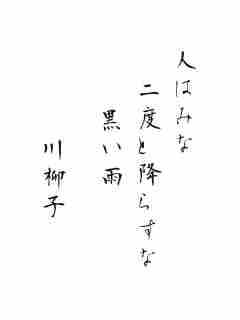 人はみな
二度と降らすな
黒い雨
川柳子